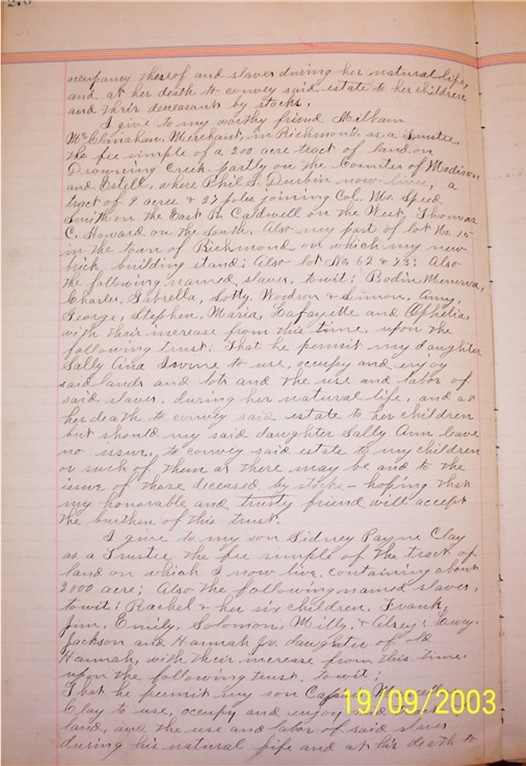 occupancy thereof and slaves during her natural life,
and at her death to convey said estate to her children
and their deceasant by stocks.
I give to my worthy friend Milbam
McClanahan, Merchant, in Richmond, as a Trustee
the fee simple of a 200 acre tract of land on
Drowning Creek partly on the Counties of Madison
and Estell, where Phil S. Durbin now lives, a
tract of 9 acres & 27 poles joining Col. Wm. Speed
Smith on the East R. Caldwell on the West, Thomas
C. Howard on the South. Also my part of lot No. 15
in the town of Richmond on which my new
brick building stand; Also lot No. 62 & 73; Also
the following named slaves, to wit: Bodin Menerva,
Charles, Gabrella, Lotty Woodson & Simon, Amy,
George, Stephen, Maria, Lafayette and Ophelia
with their increase from this time, upon the
following trust; That he permit my daughter
Sally Ann Irvine to use, occupy and enjoy
said lands and lots and the use and labor of
said slaves, during her natural life, and at
her death to convey said estate to her children
but should my said daughter Sally Ann leave
no issue, to convey said estate to my children
or such of them as there may be and to the
issue of those deceased by stocks - hoping that
my honorable and trusty friend will accept
the burthen of this trust.
I give to my son Sidney Payne Clay
as a Trustee the fee simple of the tract of
land on which I now live, containing about
2000 acres; Also the following named slaves,
to wit; Rachel & her six children, Frank,
Jim, Emily, Solomon, Milly, & Alsey;
Jackson and Hannah Jr. daughter of old
Hannah, with their increase from this time,
upon the following trust, to wit;
That he permit my son
Clay to use, occupy and enjoy said
land, and the use and labor of said slaves
during his natural life and at his death to
19/09/2003